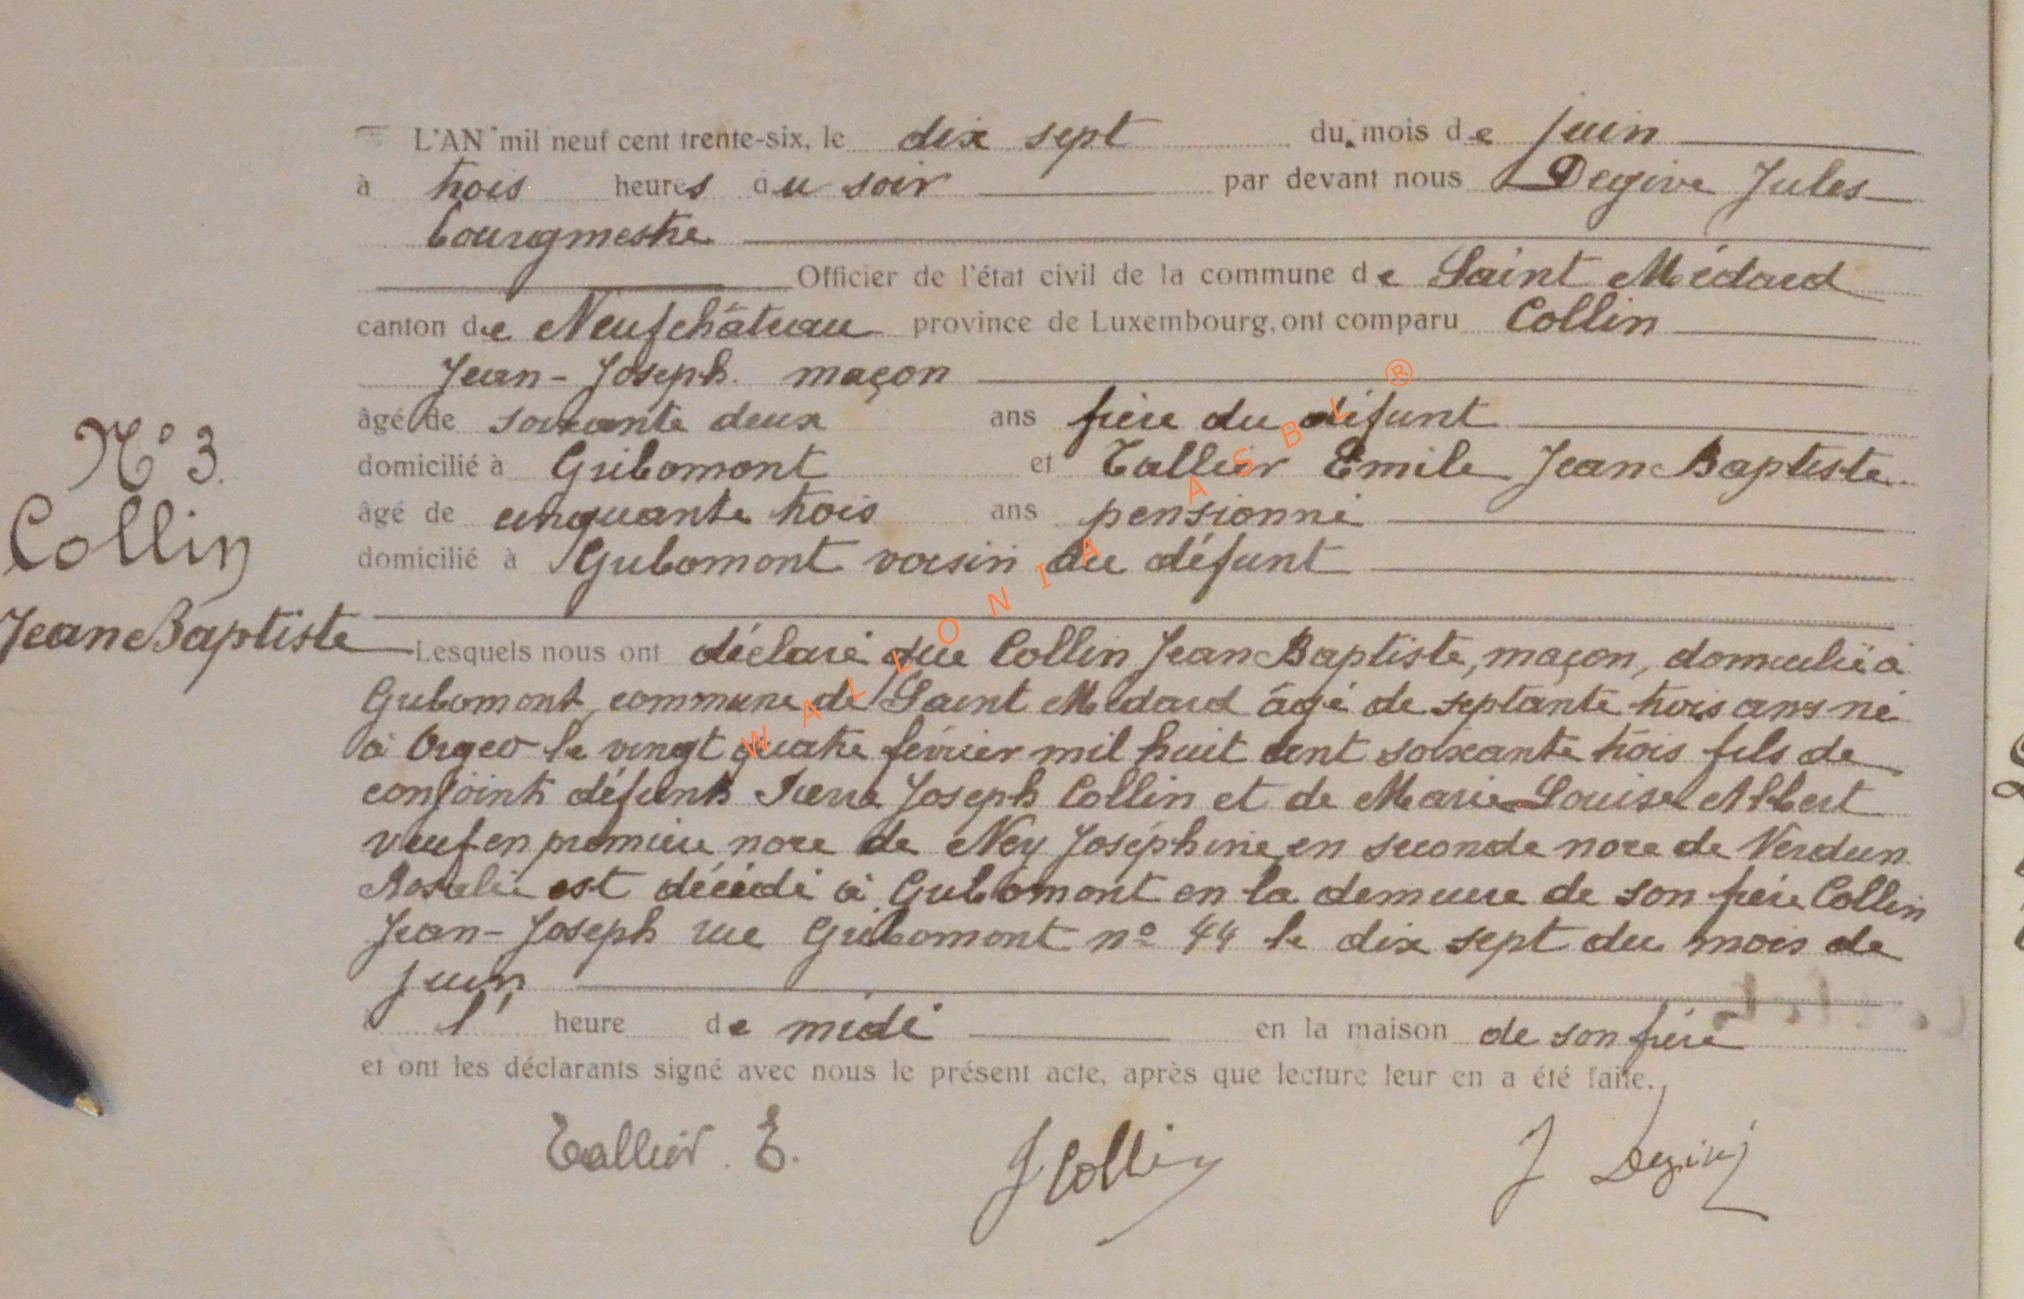 L'AN mil neuf cent trente-six, le dix sept du mois de juin
à trois heures du soir par devant nous Degive Jules
bourgmestre
Officier de l'état civil de la commune de Saint Médard
canton de Neufchâteau province de Luxembourg, ont comparu Collin
Jean-Joseph maçon
âgé de soixante deux ans frère du défunt
domicilié à Gribomont et Tallier Emile Jean Baptiste
âgé de cinquante trois ans pensionné
domicilié à Gribomont voisin du défunt
N° 3.
Collin
Jean Baptiste
Lesquels nous ont déclaré que Collin Jean Baptiste, maçon, domicilié à
Gribomont, commune de Saint Médard âgé de septante trois ans né
à Orgeo le vingt quatre février mil huit cent soixante trois fils de
conjoints défunts Pierre Joseph Collin et de Marie Louise Albert
veuf en première noce de Ney Joséphine, en seconde noce de Verdun
Rosalie est décédé à Gribomont en la demeure de son frère Collin
Jean-Joseph rue Gribomont n° 44 le dix sept du mois de
juin
à l' heure de midi en la maison de son frère
et ont les déclarants signé avec nous le présent acte, après que lecture leur en a été faite.
Tallier E. J Collin J Degive
WALLONIA ASBL ®